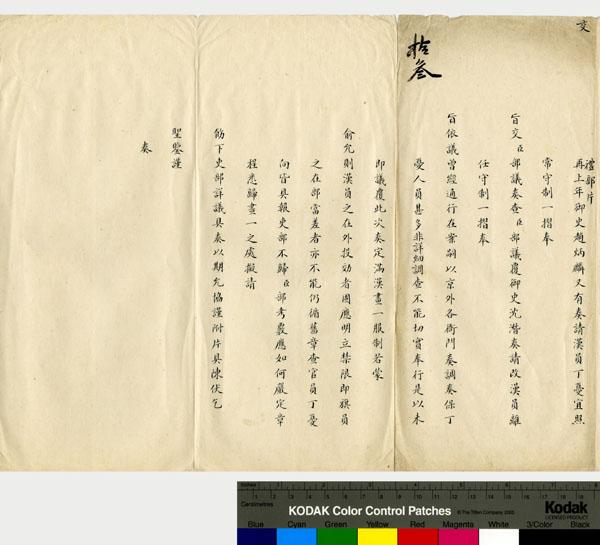 交
拾叁
禮部片
再上年御史趙炳麟又有奏請漢員丁憂宜照
常守制一摺奉
旨交臣部議奏查臣部議覆御史沈潛奏請改漢員離
任守制一摺奉
旨依議曾經通行在案嗣以京外各衙門奏調奏保丁
憂人員甚多非詳細調查不能切實奉行是以未
即議覆此次奏定滿漢畫一服制若蒙
俞允則漢員之在外投効者固應明立禁限即旗員
之在部當差者亦不能仍循舊章查官員丁憂
向皆具報吏部不歸臣部考覈應如何嚴定章
程悉歸畫一之處擬請
飭下吏部詳議具奏以期允協謹附片具陳伏乞
聖鑒謹
奏
Inches
Centimetres
KODAK Color Control Patches
© The Tiffen Company, 2000
Kodak
LICENSED PRODUCT
Blue Cyan Green Yellow Red Magenta White 3/Color Black